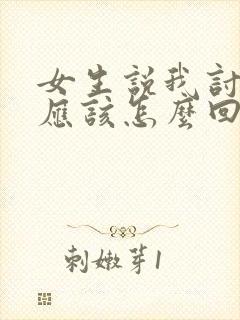 女生說我討
應該怎麼回
刺嫩芽1